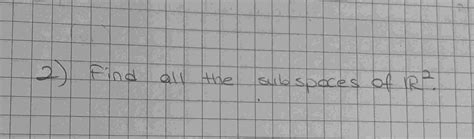 2) Find all the subspaces of ℝ².